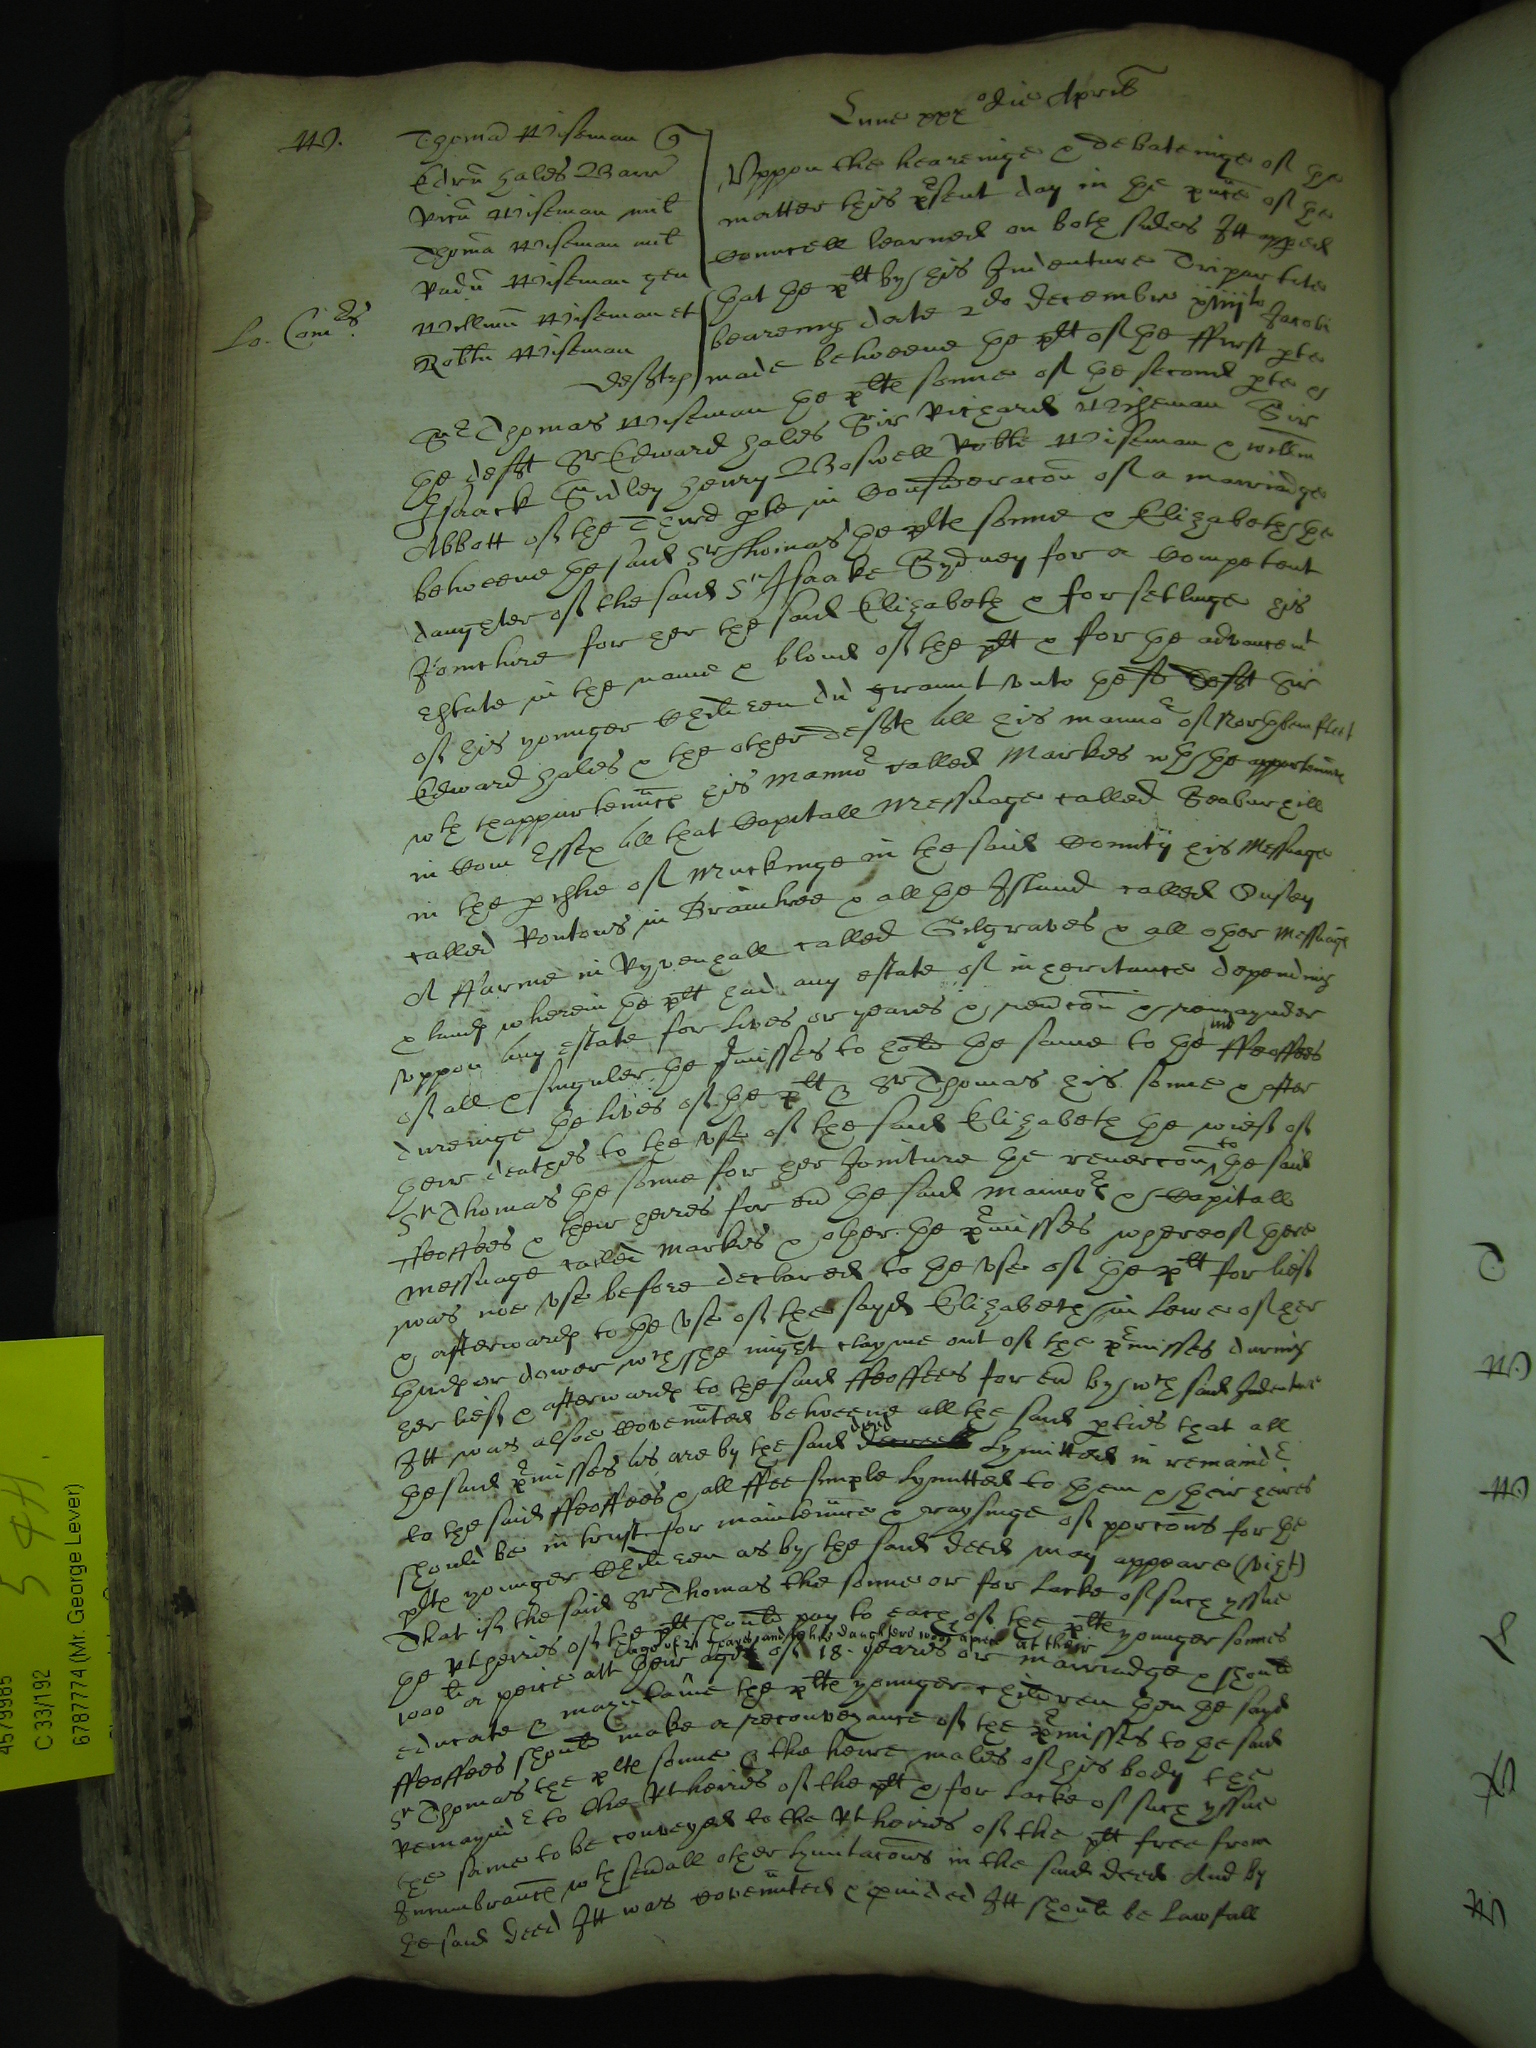 Lune xxx° die Aprilis
W. Thomas Wiseman
Edrus hales Barr
Ricus Wiseman mil
Thoma Wiseman mil
Radus Wiseman gen
Willmus Wiseman et
Robtus Wiseman
deftes
Lo. Com
Uppon the hearinge & debateinge of the
matter this psent day in the psence of the
Councell learned on both sides Itt appeared
that the plt by his Indenture Tripartite
beareing date 2do December Jacobi
made betweene the plt of the ffirst pte
Sr Thomas Wiseman the pltes sonne of the second pte &
the deft Sr Edward hales Sir Richard Wiseman Sir
Isaack Sidley henry Boswell Robte Wiseman & willm
Abbott of the Third pte in Consideracon of a marriadge
betweene the said Sr Thomas the pltes sonne & Elizabeth the
daughter of the said Sr Isaake Sydney for a Competent
Joincture for her the said Elizabeth & for setlinge his
Estate in the name & bloud of the plt & for the advancemt
of his younger Children did graunt vnto the sd deft Sir
Edward hales & the other deftes All his mannor of Northbemfleet
wth thappurtennces his Mannor Called Markes wth the appurtennces
in Com Essex All that Capitall Messuage called Seaburhill
in the pishe of Muckinge in the said County his Messuage
called Rontons in Braintree & all the Island called Ousey
A ffarme in Ryvenhall called Selgraves & all other Messuages
& landes wherein the plt had any estate of inheritance depending
vppon any estate for lives or yeares & revercon & remaynder
of all & singuler the pmisses to hold the same to the sd ffeoffees
dureinge the lives of the plt & Sr Thomas his sonne & after
their deathes to the vse of the said Elizabeth the wief of
Sr Thomas the sonne for her Jointure the revercon to the said
ffeoffees & their heires for evr the said Mannor & Capitall
messuage called Markes & other the pmisses whereof there
was noe vse before declared to the vse of the plt for lief
& afterwardes to the vse of the sayd Elizabeth in Lewe of her
thirdes or dower wch she might clayme out of the pmisses during
her lief & afterwardes to the said ffeoffees for evr by wch said Indenture
Itt was alsoe Covennted betweene all the said pties that all
the said pmisses as are by the said deed Lymitted in remaindr
to the said ffeoffees & all ffee simple Lymitted to them & their heires
should be in trust for maintennce & raysinge of porcons for the
pltes younger Children as by the said deed may appeare (vizt)
That if the said Sr Thomas the sonne or for Lacke of such yssue
the Rt heires of the plt should pay to each of the pltes younger sonnes
1000li a peice att their age of 21 yeares and to his daughters 1000li apeice at their age of 18 yeares or marriadge & should
educate & mayntaine the pltes younger children then the said
ffeoffees should make a reconveyance of the pmisses to the said
Sr Thomas the pltes sonne & the heire males of his body the
Remayndr to the Rt heires of the plt & for Lacke of such yssue
the same to be conveyed to the Rt heires of the plt free from
Incumbrances wth sevrall other Lymitacons in the said deed And by
the said deed Itt was Covennted & pvided Itt should be Lawfull
4579985
C 33/192
6787774 (Mr. George Lever)